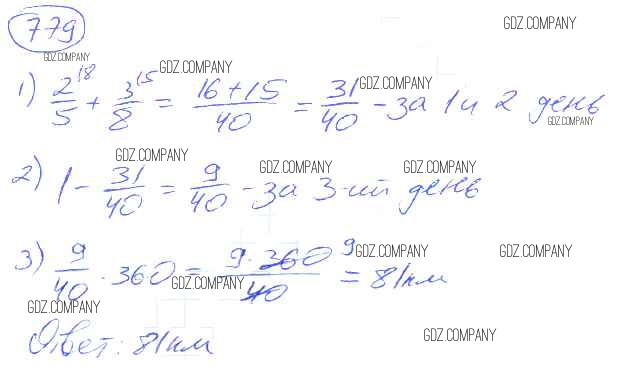 779
GDZ.COMPANY
GDZ.COMPANY
GDZ.COMPANY
1) 2/5 |8 + 3/8 |5 = (16+15)/40 = 31/40 - за 1 и 2 день
GDZ.COMPANY
GDZ.COMPANY
GDZ.COMPANY
2) 1 - 31/40 = 9/40 - за 3-ий день
GDZ.COMPANY
GDZ.COMPANY
3) 9/40 · 360 = (9 · 360 9)/40 = 81 км
GDZ.COMPANY
GDZ.COMPANY
GDZ.COMPANY
GDZ.COMPANY
Ответ: 81 км
GDZ.COMPANY